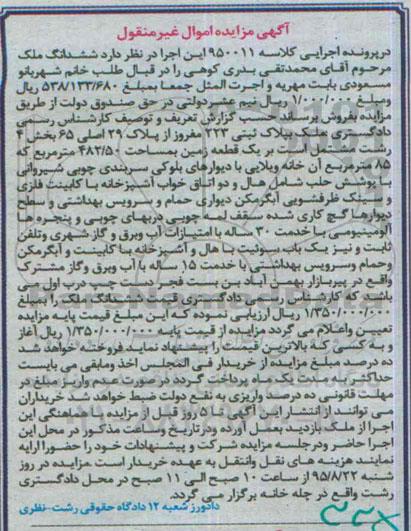 آگهی مزایده اموال غیرمنقول
درپرونده اجرایی کلاسه ۹۵۰۰۱۱ این اجرا در نظر دارد ششدانگ ملک
مرحوم آقای محمدتقی بدری کوهی را در قبال طلب خانم شهربانو
مسعودی بابت مهریه و اجرت المثل جمعا بمبلغ ۵۳۸/۱۳۳/۶۸۰ ریال
ومبلغ ریال نیم عشر دولتی در حق صندوق دولت از طریق
مزایده بفروش برساند. حسب گزارش تعریف و توصیف کارشناس رسمی
دادگستری ملک بپلاک ثبتی ۲۲۳ مفروز از پلاک ۲۹ اصلی ۶۵ بخش ۴
رشت است بر یک قطعه زمین بمساحت ۴۸۲/۵۰ مترمربع که
۸۵ مترمربع آن خانه ویلایی با دیوارهای بلوکی سربندی چوبی شیروانی
با پوشش حلب شامل هال و دو اتاق خواب آشپزخانه با کابینت فلزی
و سینک ظرفشویی آبگرمکن دیواری حمام و سرویس بهداشتی و سطح
دیوارها گچ کاری شده سقف لمبه چوبی دربهای چوبی و پنجره ها
آلومینیومی با خدمت ۳۰ ساله با امتیازات آب وبرق و گاز شهری وتلفن
ثابت و نیز یک باب سوئیت با هال و آشپزخانه با کابینت و آبگرمکن
وحمام وسرویس بهداشتی با خدمت ۱۵ ساله با آب وبرق وگاز مشترک
واقع در پیربازار بهدان آباد بن بست فجر دست چپ درب اول می
باشد که کارشناس رسمی دادگستری قیمت ششدانگ ملک را بمبلغ
۱/۳۵۰/۰۰۰/۰۰۰ ریال ارزیابی نموده که این مبلغ قیمت پایه مزایده
تعیین واعلام می گردد مزایده از قیمت پایه ۱/۳۵۰/۰۰۰/۰۰۰ ریال آغاز
و به کسی که بالاترین قیمت را پیشنهاد نماید فروخته خواهد شد
ده درصد مبلغ مزایده از خریدار فی المجلس اخذ ومابقی می بایست
حداکثر به مدت یک ماه پرداخت گردد در صورت عدم واریز مبلغ در
مهلت قانونی ده درصد واریزی به نفع دولت ضبط خواهد شد خریداران
می توانند از انتشار این آگهی تا ۵ روز قبل از مزایده با هماهنگی این
اجرا از ملک بازدید بعمل آورده ودر تاریخ وساعت مذکور در محل این
اجرا حاضر ودر جلسه مزایده شرکت و پیشنهادات خود را حضورا ارایه
نمایند هزینه های نقل وانتقل به عهده خریدار است مزایده در روز
شنبه ۹۵/۸/۲۲ از ساعت ۱۰ صبح الی ۱۱ صبح در محل دادگستری
رشت واقع در جله خانه برگزار می گردد.
دادورز شعبه ۱۲ دادگاه حقوقی رشت-نظری